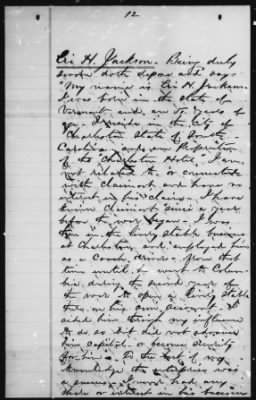 12
Eri H. Jackson. Being duly
sworn doth depose and say:
"My name is Eri H. Jackson.
I was born in the State of
Vermont and am 57 years of
age. I reside in the City of
Charleston State of South
Carolina and am Proprietor
of the "Charleston Hotel". I am
not related to, or connected
with claimant and have no
interest in his claim. I have
known claimant since a year
before the war began. I was
then in the livery stable business
at Charleston and employed him
as a coach driver from that
time until he went to Colum-
bia during the second year of
the war to open a livery stable
there on his own account. I
aided him through my influence
to do so but did not furnish
him capital or become security
for him. To the best of my
knowledge the enterprise was
a success. I never had any
share or interest in his business